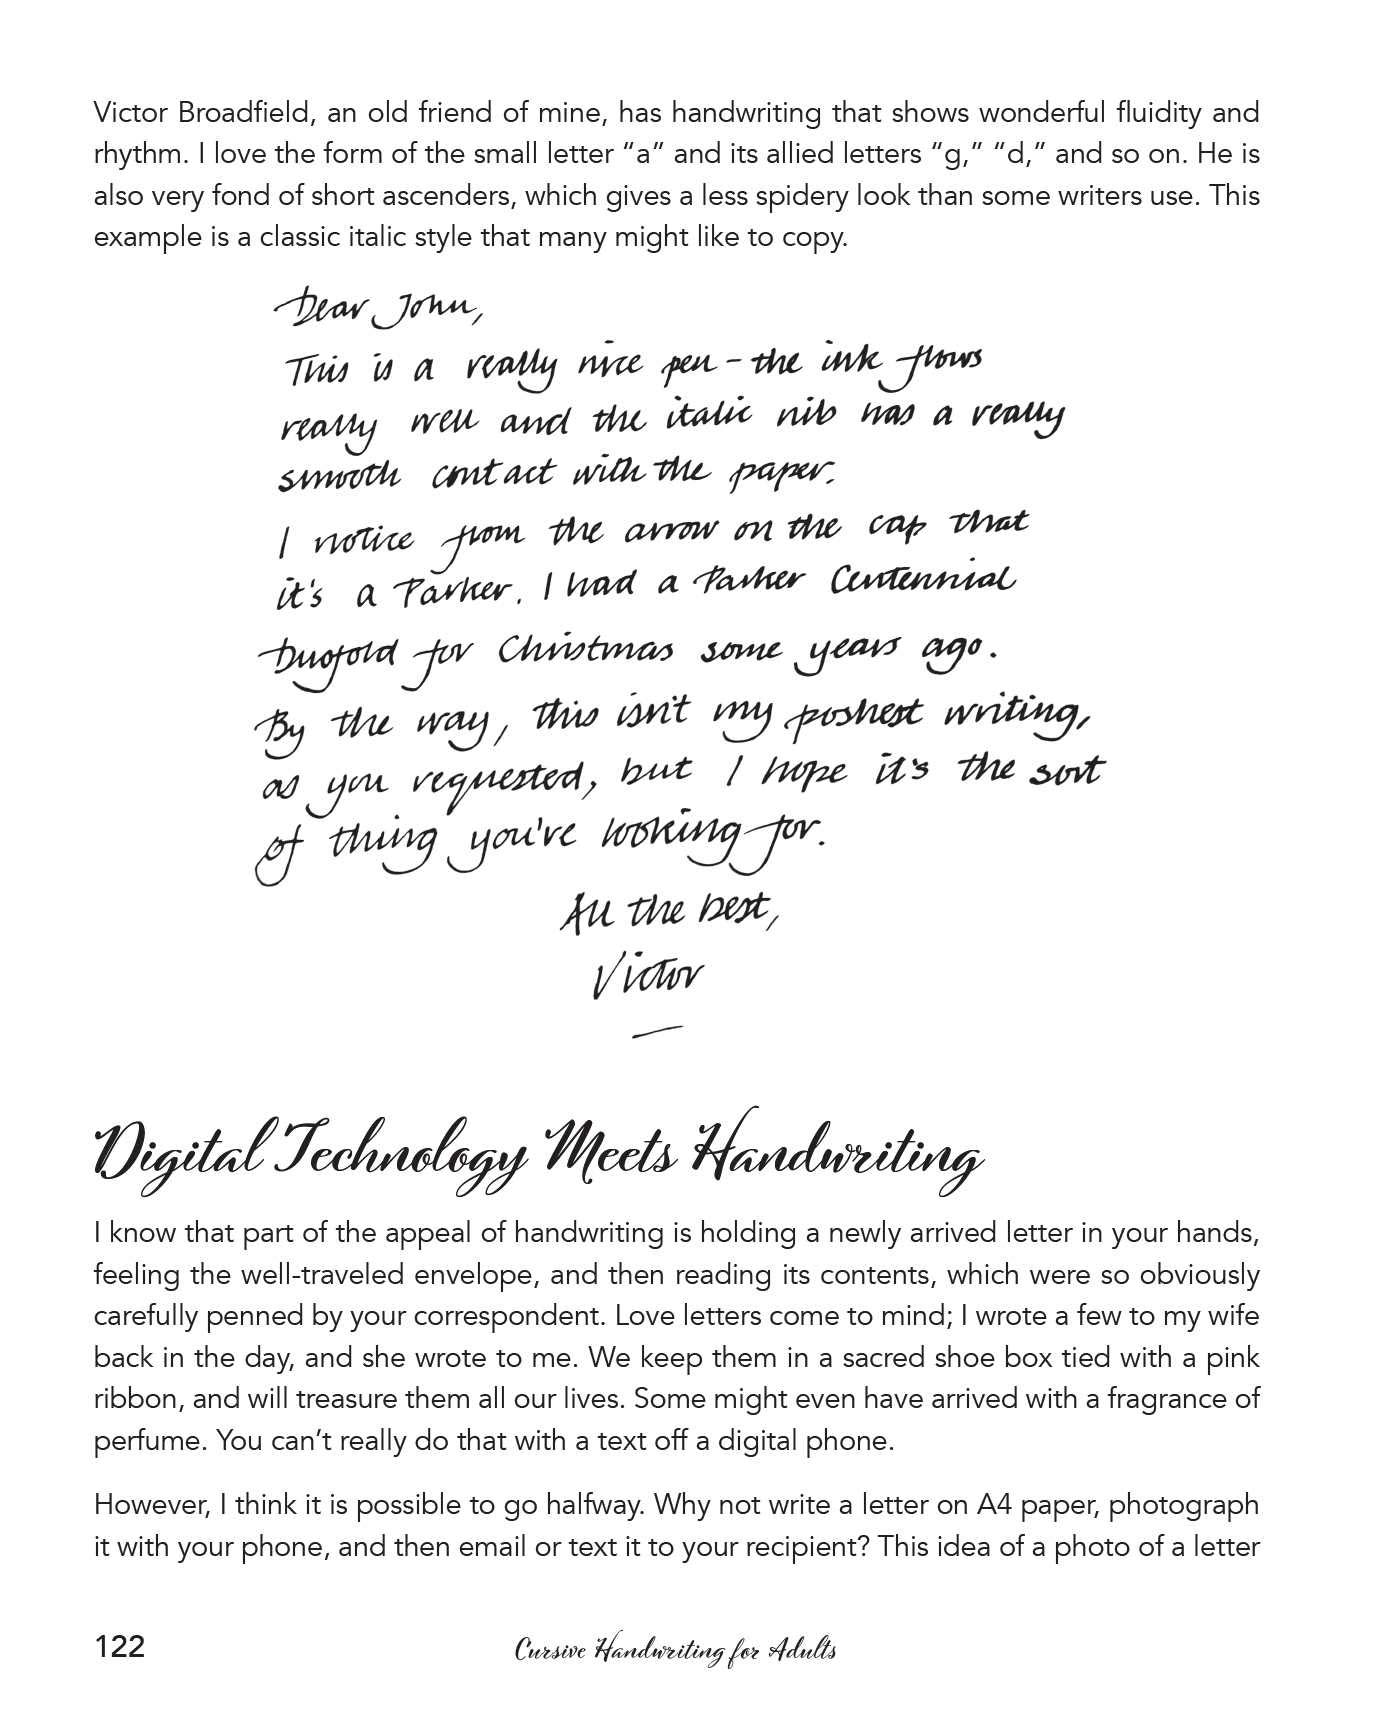 Victor Broadfield, an old friend of mine, has handwriting that shows wonderful fluidity and
rhythm. I love the form of the small letter “a” and its allied letters “g,” “d,” and so on. He is
also very fond of short ascenders, which gives a less spidery look than some writers use. This
example is a classic italic style that many might like to copy.
Dear John,
This is a really nice pen – the ink flows
really well and the italic nib has a really
smooth contact with the paper.
I notice from the arrow on the cap that
it's a Parker. I had a Parker Centennial
Duofold for Christmas some years ago.
By the way, this isn't my poshest writing,
as you requested, but I hope it's the sort
of thing you've looking for.
All the best,
Victor
Digital Technology Meets Handwriting
I know that part of the appeal of handwriting is holding a newly arrived letter in your hands,
feeling the well-traveled envelope, and then reading its contents, which were so obviously
carefully penned by your correspondent. Love letters come to mind; I wrote a few to my wife
back in the day, and she wrote to me. We keep them in a sacred shoe box tied with a pink
ribbon, and will treasure them all our lives. Some might even have arrived with a fragrance of
perfume. You can’t really do that with a text off a digital phone.
However, I think it is possible to go halfway. Why not write a letter on A4 paper, photograph
it with your phone, and then email or text it to your recipient? This idea of a photo of a letter
122 Cursive Handwriting for Adults